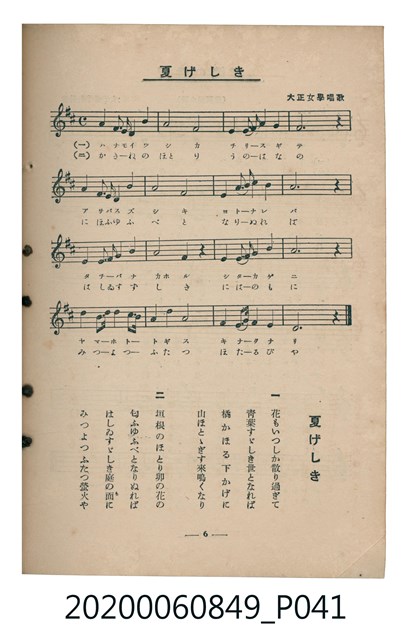 夏げしき
大正女學唱歌
(一) ハナモイツシカ チリースギテ
(二) かきーねのほとり うのーはなの
アヲバスズシキ ヨトーナレバ
にほふゆふべと なりーぬれば
タチーバナカホル シターカゲニ
はしゐすずしき にはーのもに
ヤマーホトートギス キナータナリ
みつーよつーふたつ ほたーるびや
夏げしき
一 花もいつしか散り過ぎて
青葉すゞしき世となれば
橘かほる下かげに
山ほとゝぎす來鳴くなり
二 垣根のほとり卯の花の
匂ふゆふべとなりぬれば
はしゐすゞしき庭の面に
みつよつふたつ螢火や
— 6 —
20200060849_P041